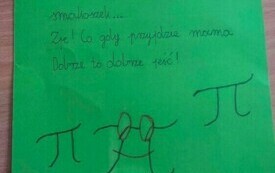 smakoszek...
Źle! Co gdy przyjdzie mama
Dobrze to dobrze jeść!
π π